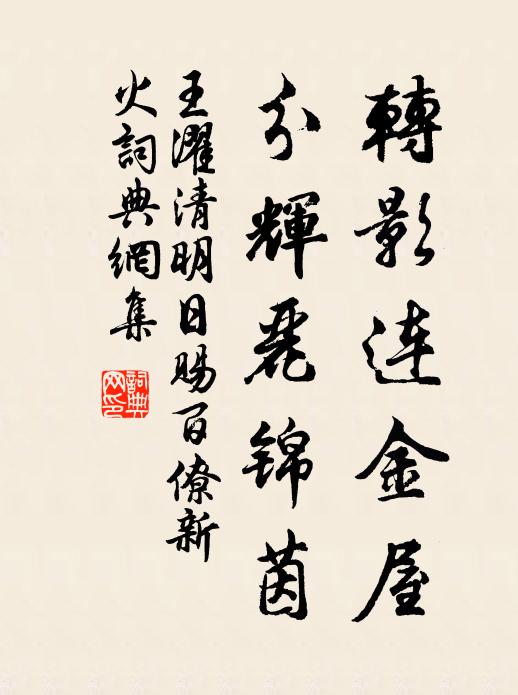 轉影連金屋
分輝麗錦茵
王濯清明日賜百僚新
火詞典網集
詞典網印